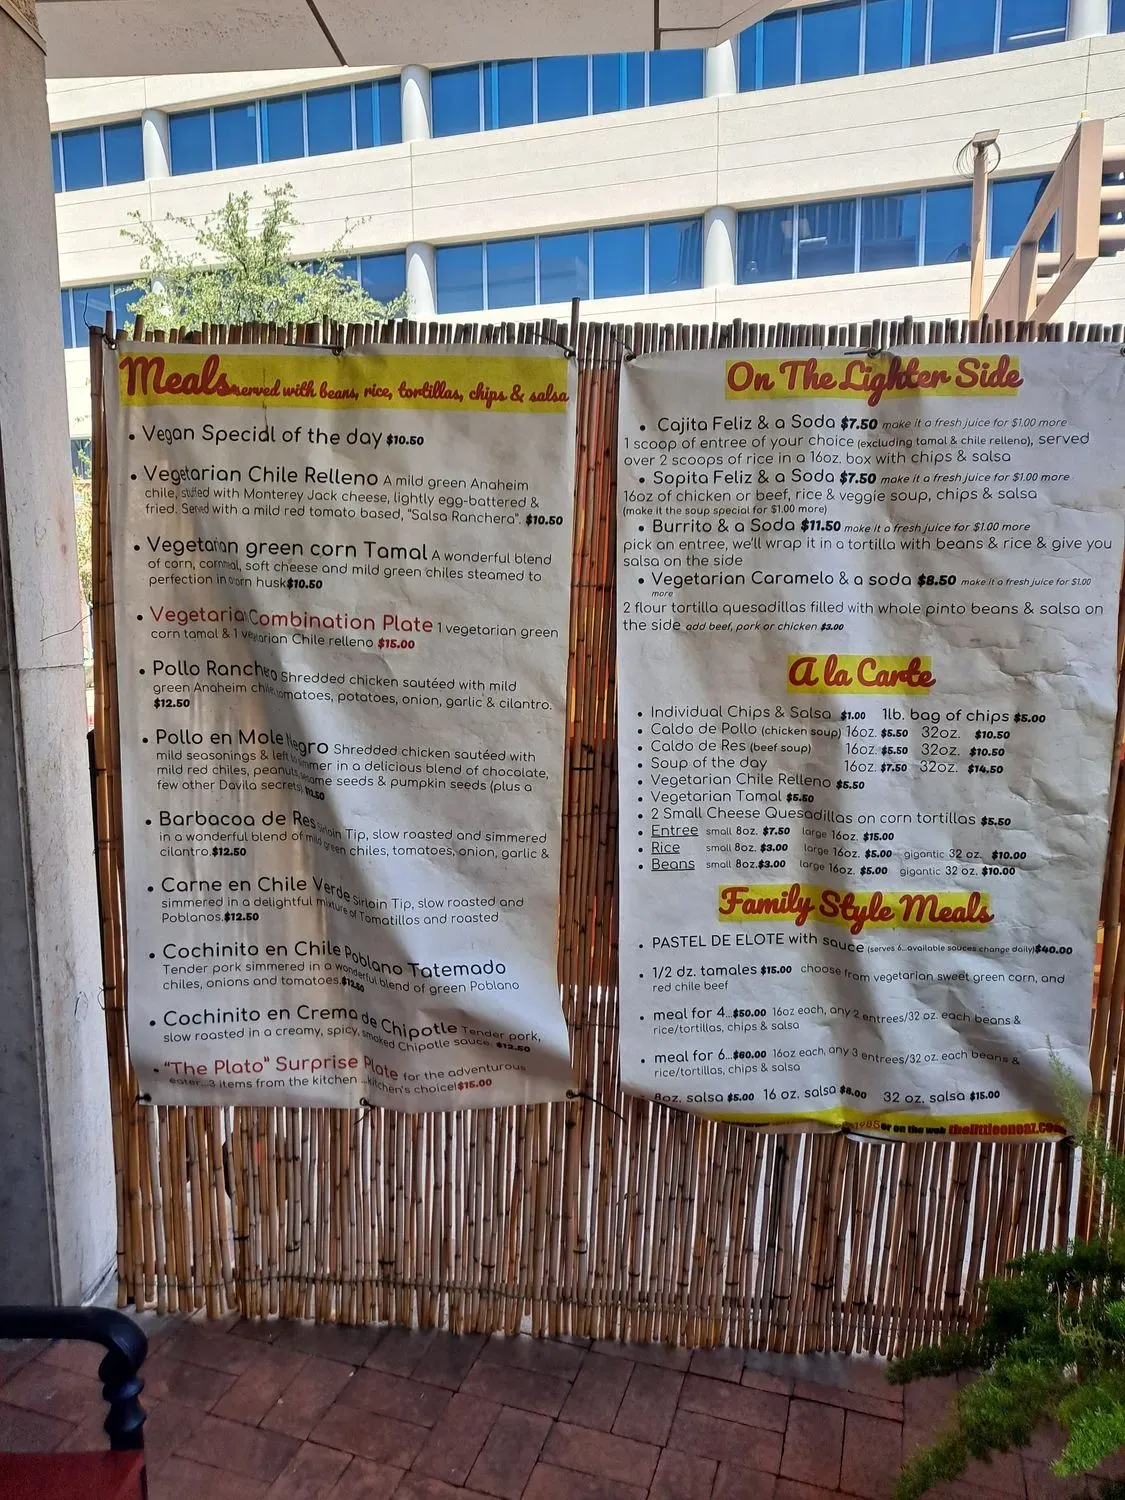 Meals served with beans, rice, tortillas, chips & salsa
• Vegan Special of the day $10.50
• Vegetarian Chile Relleno A mild green Anaheim
chile, stuffed with Monterey Jack cheese, lightly egg-battered &
fried. Served with a mild red tomato based, "Salsa Ranchera". $10.50
• Vegetarian green corn Tamal A wonderful blend
of corn, cornmeal, soft cheese and mild green chiles steamed to
perfection in corn husk $10.50
• Vegetarian Combination Plate 1 vegetarian green
corn tamal & 1 vegetarian Chile relleno $15.00
• Pollo Ranchero Shredded chicken sautéed with mild
green Anaheim chile, tomatoes, potatoes, onion, garlic & cilantro.
$12.50
• Pollo en Mole Negro Shredded chicken sautéed with
mild seasonings & left to simmer in a delicious blend of chocolate,
mild red chiles, peanuts, sesame seeds & pumpkin seeds (plus a
few other Davila secrets) $12.50
• Barbacoa de Res Sirloin Tip, slow roasted and simmered
in a wonderful blend of mild green chiles, tomatoes, onion, garlic &
cilantro. $12.50
• Carne en Chile Verde Sirloin Tip, slow roasted and
simmered in a delightful mixture of Tomatillos and roasted
Poblanos. $12.50
• Cochinito en Chile Poblano Tatemado
Tender pork simmered in a wonderful blend of green Poblano
chiles, onions and tomatoes. $12.50
• Cochinito en Crema de Chipotle Tender pork,
slow roasted in a creamy, spicy, smoked Chipotle sauce. $12.50
• "The Plato" Surprise Plate for the adventurous
eater...3 items from the kitchen ...kitchen's choice! $15.00
On The Lighter Side
• Cajita Feliz & a Soda $7.50 make it a fresh juice for $1.00 more
1 scoop of entree of your choice (excluding tamal & chile relleno), served
over 2 scoops of rice in a 16oz. box with chips & salsa
• Sopita Feliz & a Soda $7.50 make it a fresh juice for $1.00 more
16oz of chicken or beef, rice & veggie soup, chips & salsa
(make it the soup special for $1.00 more)
• Burrito & a Soda $11.50 make it a fresh juice for $1.00 more
pick an entree, we'll wrap it in a tortilla with beans & rice & give you
salsa on the side
• Vegetarian Caramelo & a soda $8.50 make it a fresh juice for $1.00
more
2 flour tortilla quesadillas filled with whole pinto beans & salsa on
the side add beef, pork or chicken $3.00
A la Carte
• Individual Chips & Salsa $1.00 1lb. bag of chips $5.00
• Caldo de Pollo (chicken soup) 16oz. $5.50 32oz. $10.50
• Caldo de Res (beef soup) 16oz. $5.50 32oz. $10.50
• Soup of the day 16oz. $7.50 32oz. $14.50
• Vegetarian Chile Relleno $5.50
• Vegetarian Tamal $5.50
• 2 Small Cheese Quesadillas on corn tortillas $5.50
• Entree small 8oz. $7.50 large 16oz. $15.00
• Rice small 8oz. $3.00 large 16oz. $5.00 gigantic 32 oz. $10.00
• Beans small 8oz. $3.00 large 16oz. $5.00 gigantic 32 oz. $10.00
Family Style Meals
• PASTEL DE ELOTE with sauce (serves 6...available sauces change daily) $40.00
• 1/2 dz. tamales $15.00 choose from vegetarian sweet green corn, and
red chile beef
• meal for 4...$50.00 16oz each, any 2 entrees/32 oz. each beans &
rice/tortillas, chips & salsa
• meal for 6...$60.00 16oz each, any 3 entrees/32 oz. each beans &
rice/tortillas, chips & salsa
8oz. salsa $5.00 16 oz. salsa $8.00 32 oz. salsa $15.00
1985 or on the web thelittleoneaz.com